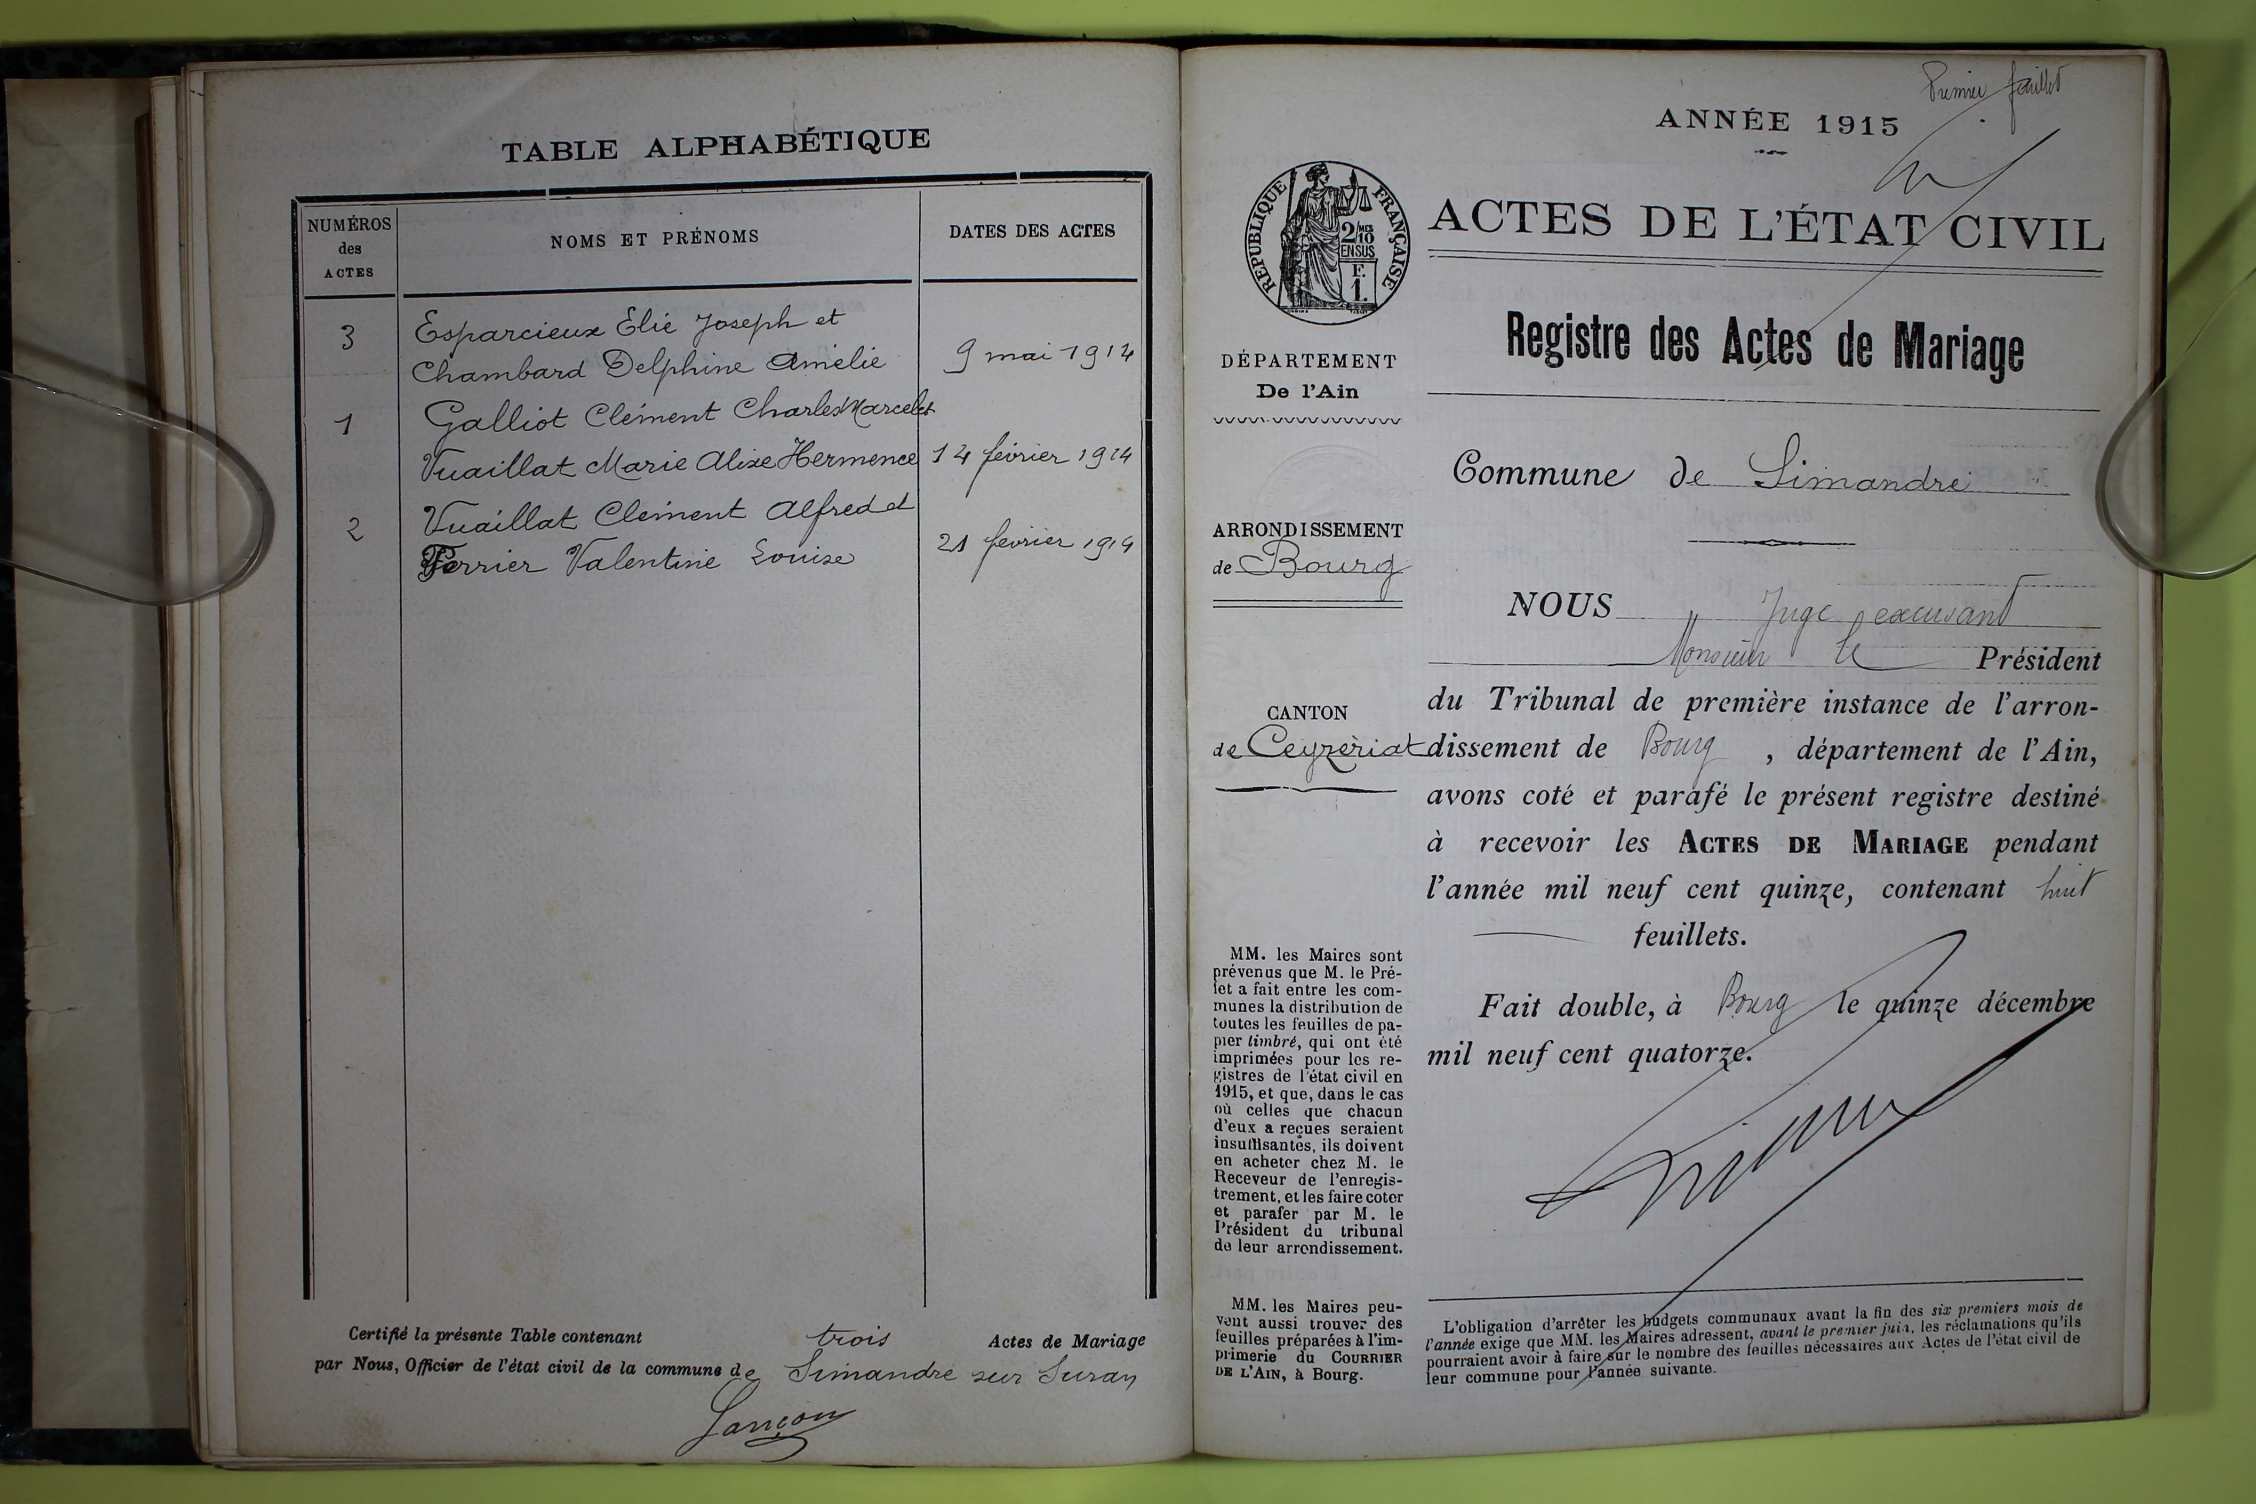 TABLE ALPHABÉTIQUE
NUMÉROS
des
ACTES
NOMS ET PRÉNOMS
DATES DES ACTES
3
Esparcieux Elie Joseph et
Chambard Delphine Amélie
9 mai 1914
1
Galliot Clément Charles Marcel et
Vuaillat Marie Alixe Hermence
14 février 1914
2
Vuaillat Clément Alfred et
Ferrier Valentine Louise
21 février 1914
Certifié la présente Table contenant trois Actes de Mariage
par Nous, Officier de l'état civil de la commune de Simandre sur Suran
Lançon
Premier feuillet
ANNÉE 1915
ACTES DE L'ÉTAT CIVIL
RÉPUBLIQUE FRANÇAISE
2/10 MES
EN SUS
F.
1.
Registre des Actes de Mariage
DÉPARTEMENT
De l'Ain
Commune de Simandre
ARRONDISSEMENT
de Bourg
CANTON
de Ceyzériat
NOUS Juge excusant
Monsieur le Président
du Tribunal de première instance de l'arron-
dissement de Bourg, département de l'Ain,
avons coté et parafé le présent registre destiné
à recevoir les ACTES DE MARIAGE pendant
l'année mil neuf cent quinze, contenant huit
feuillets.
Fait double, à Bourg le quinze décembre
mil neuf cent quatorze.
MM. les Maires sont
prévenus que M. le Pré-
fet a fait entre les com-
munes la distribution de
toutes les feuilles de pa-
pier timbré, qui ont été
imprimées pour les re-
gistres de l'état civil en
1915, et que, dans le cas
où celles que chacun
d'eux a reçues seraient
insuffisantes, ils doivent
en acheter chez M. le
Receveur de l'enregis-
trement, et les faire coter
et parafer par M. le
Président du tribunal
de leur arrondissement.
MM. les Maires peu-
vent aussi trouver des
feuilles préparées à l'im-
primerie du COURRIER
DE L'AIN, à Bourg.
L'obligation d'arrêter les budgets communaux avant la fin des six premiers mois de
l'année exige que MM. les Maires adressent, avant le premier juin, les réclamations qu'ils
pourraient avoir à faire sur le nombre des feuilles nécessaires aux Actes de l'état civil de
leur commune pour l'année suivante.